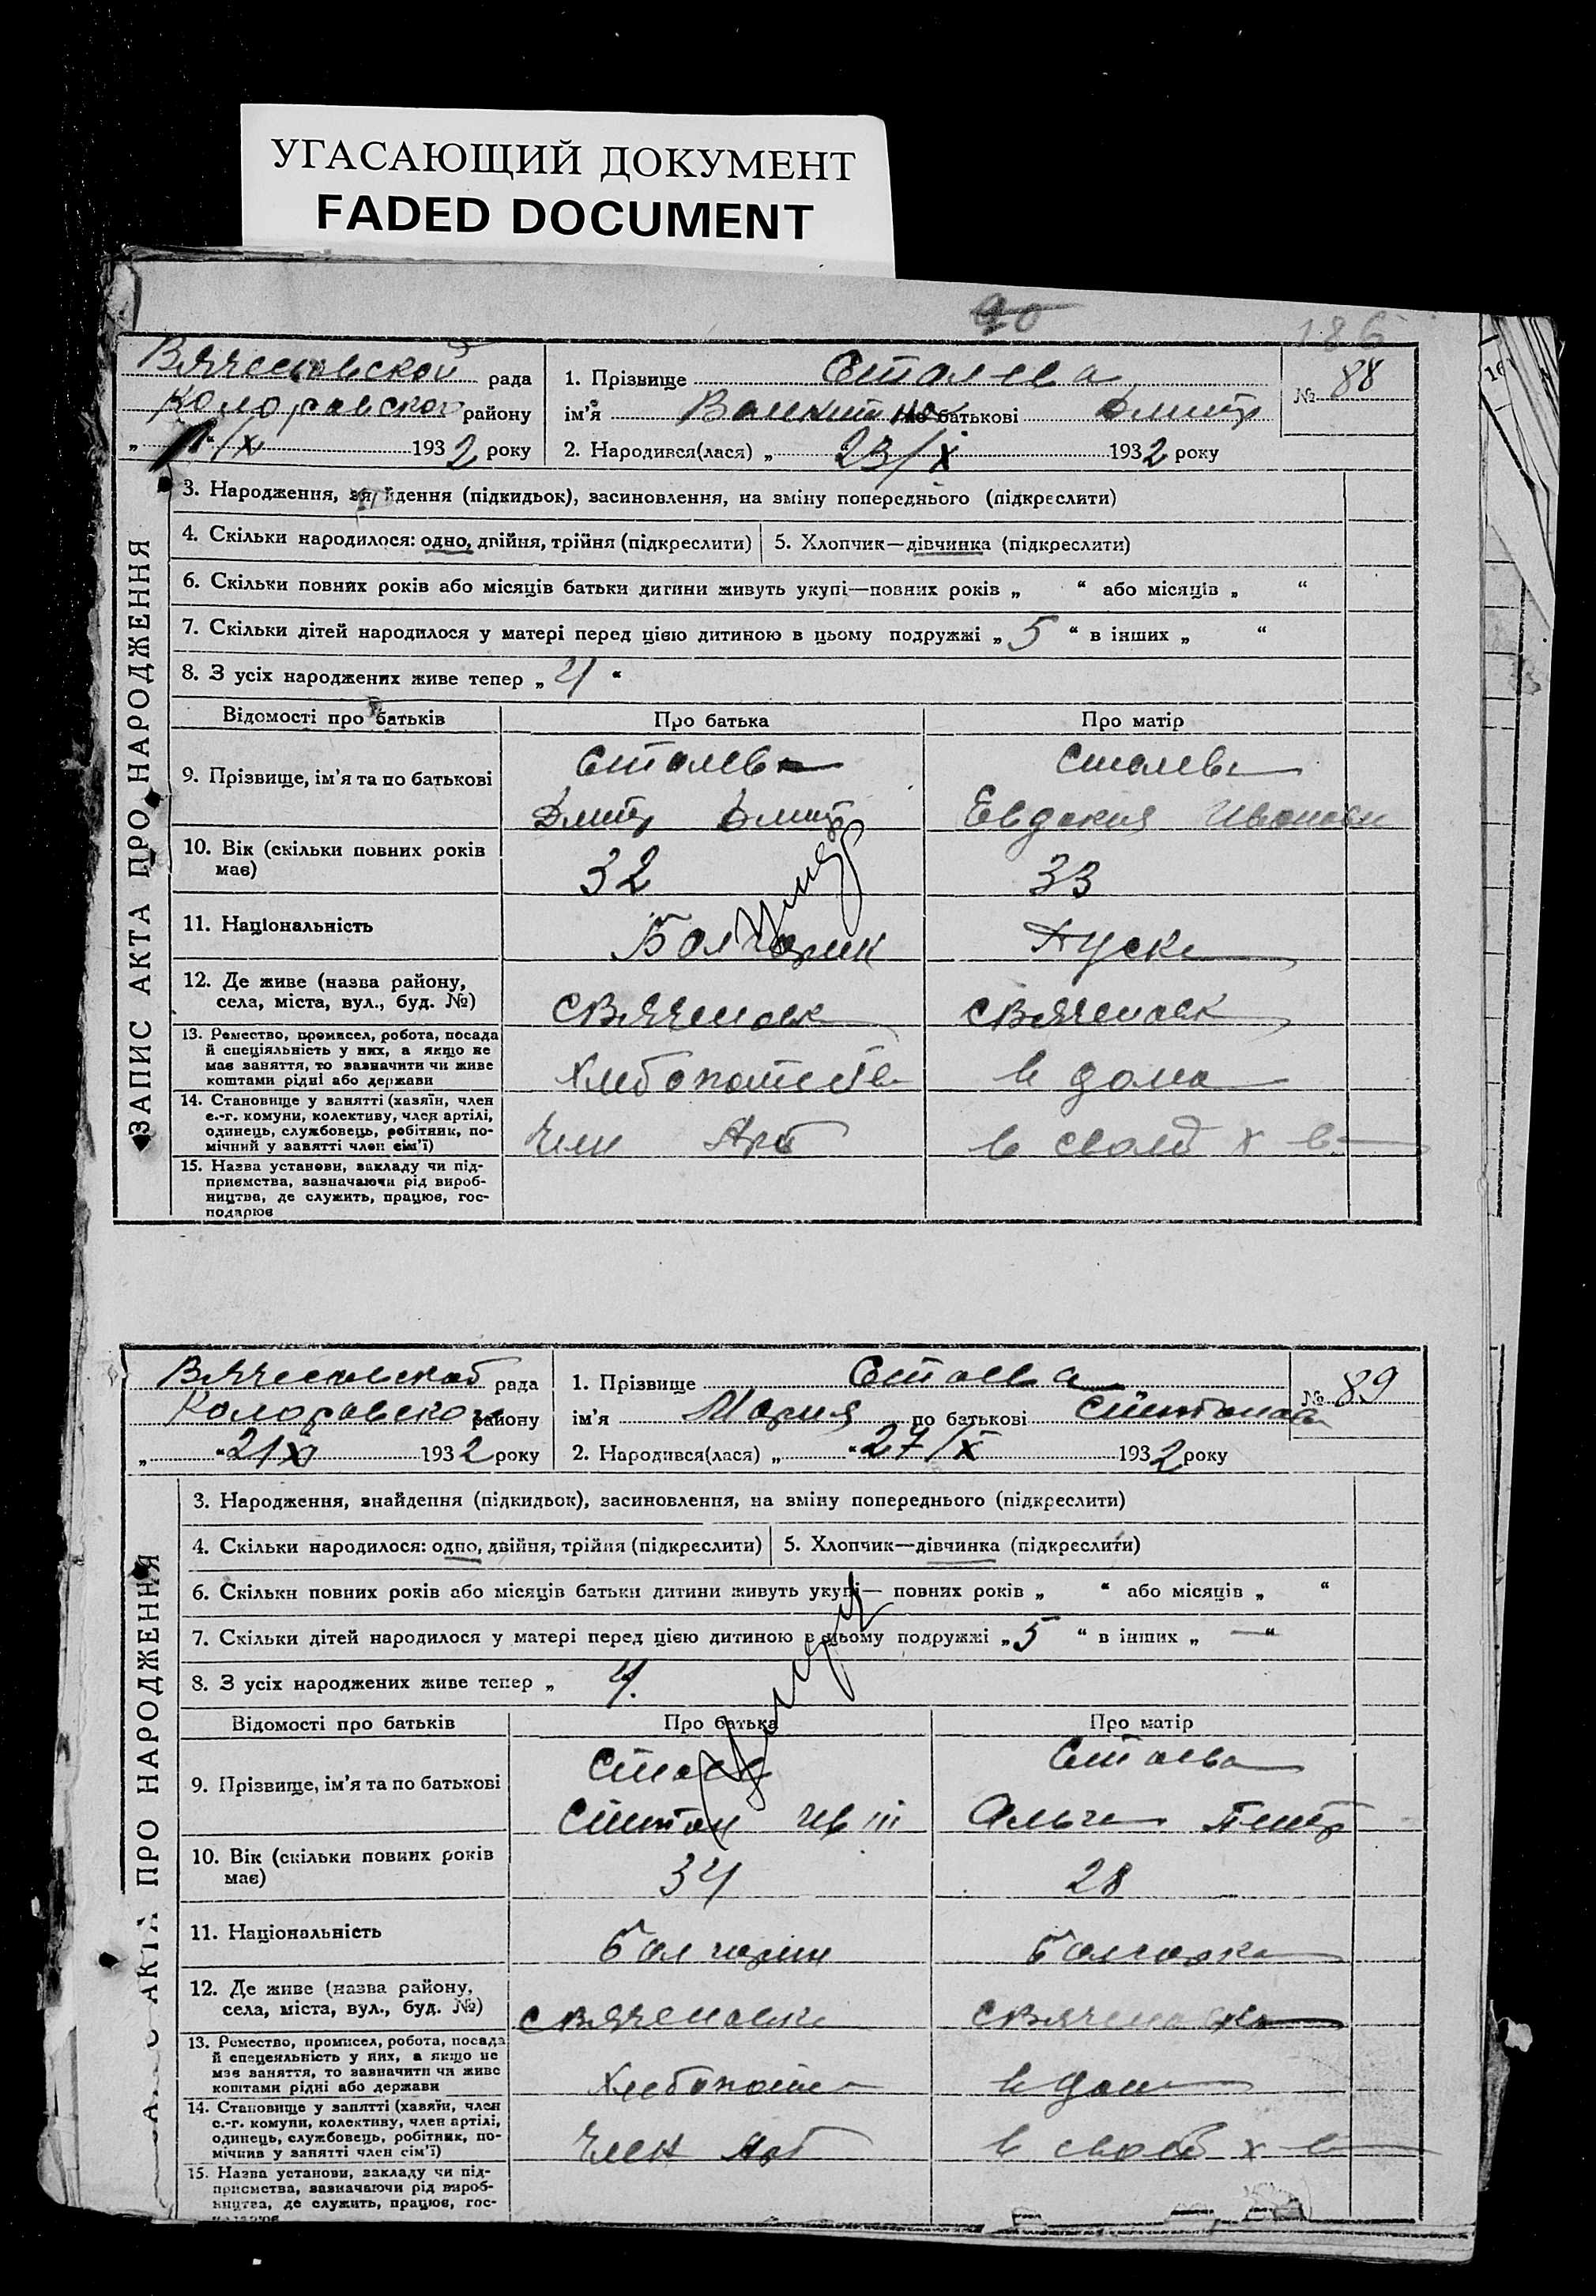 УГАСАЮЩИЙ ДОКУМЕНТ
FADED DOCUMENT
90
186
рада
району
„ " /XI 1932 року
1. Прізвище
ім'я по батькові Дмитр
2. Народився(лася) „ 23/X 1932 року
№ 88
ЗАПИС АКТА ПРО НАРОДЖЕННЯ
3. Народження, знайдення (підкидьок), засиновлення, на зміну попереднього (підкреслити)
4. Скільки народилося: одно, двійня, трійня (підкреслити)
5. Хлопчик—дівчинка (підкреслити)
6. Скільки повних років або місяців батьки дитини живуть укупі—повних років „ “ або місяців „ “
7. Скільки дітей народилося у матері перед цією дитиною в цьому подружжі „ 5 “ в інших „ “
8. З усіх народжених живе тепер „ 4 “
Відомості про батьків
Про батька
Про матір
9. Прізвище, ім'я та по батькові
Дмитр Дмитр
Евдокия Иванови
10. Вік (скільки повних років має)
32
33
11. Національність
Болгарин
12. Де живе (назва району,
села, міста, вул., буд. №)
13. Ремество, промисел, робота, посада
й спеціяльність у них, а якщо не
має заняття, то зазначити чи живе
коштами рідні або держави
в дома
14. Становище у занятті (хазяїн, член
с.-г. комуни, колективу, член артілі,
одинець, службовець, робітник, по-
мічний у занятті член сім'ї)
Член Арт
в своей х в
15. Назва установи, закладу чи під-
приємства, зазначаючи рід вироб-
ництва, де служить, працює, гос-
подарює
рада
району
„ “ 21 XI 1932 року
1. Прізвище Стоева
ім'я Мария по батькові
2. Народився(лася) „ “ 27/X 1932 року
№ 89
АКТА ПРО НАРОДЖЕННЯ
3. Народження, знайдення (підкидьок), засиновлення, на зміну попереднього (підкреслити)
4. Скільки народилося: одно, двійня, трійня (підкреслити)
5. Хлопчик—дівчинка (підкреслити)
6. Скільки повних років або місяців батьки дитини живуть укупі— повних років „ “ або місяців „ “
7. Скільки дітей народилося у матері перед цією дитиною в цьому подружжі „ 5 “ в інших „ — “
8. З усіх народжених живе тепер „ 4.
Відомості про батьків
Про батька
Про матір
9. Прізвище, ім'я та по батькові
Стоев
Стоева
10. Вік (скільки повних років має)
34
28
11. Національність
Болгарин
Болгарка
12. Де живе (назва району,
села, міста, вул., буд. №)
13. Ремество, промисел, робота, посада
й спецеяльність у них, а якщо не
має заняття, то зазначити чи живе
коштами рідні або держави
14. Становище у занятті (хазяїн, член
с.-г. комуни, колективу, член артілі,
одинець, службовець, робітник, по-
мічнив у занятті член сім'ї)
Член Арт
в своей х в
15. Назва установи, закладу чи під-
приємства, зазначаючи рід вироб-
ництва, де служить, працює, гос-